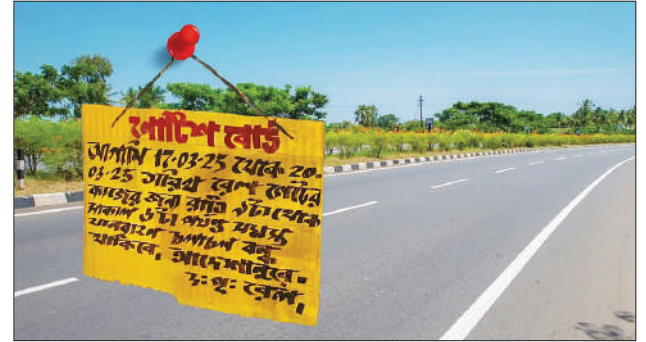 নোটিশ বোর্ড
আগামি 17-03-25 থেকে 20-
03-25 তারিখ রেল গেটের
কাজের জন্য রাত্রি ৯টা থেকে
সকাল ৬টা পর্যন্ত সমস্ত
যানবাহন চলাচল বন্ধ
থাকিবে। আদেশানুসারে।
দ: পূ: রেল।